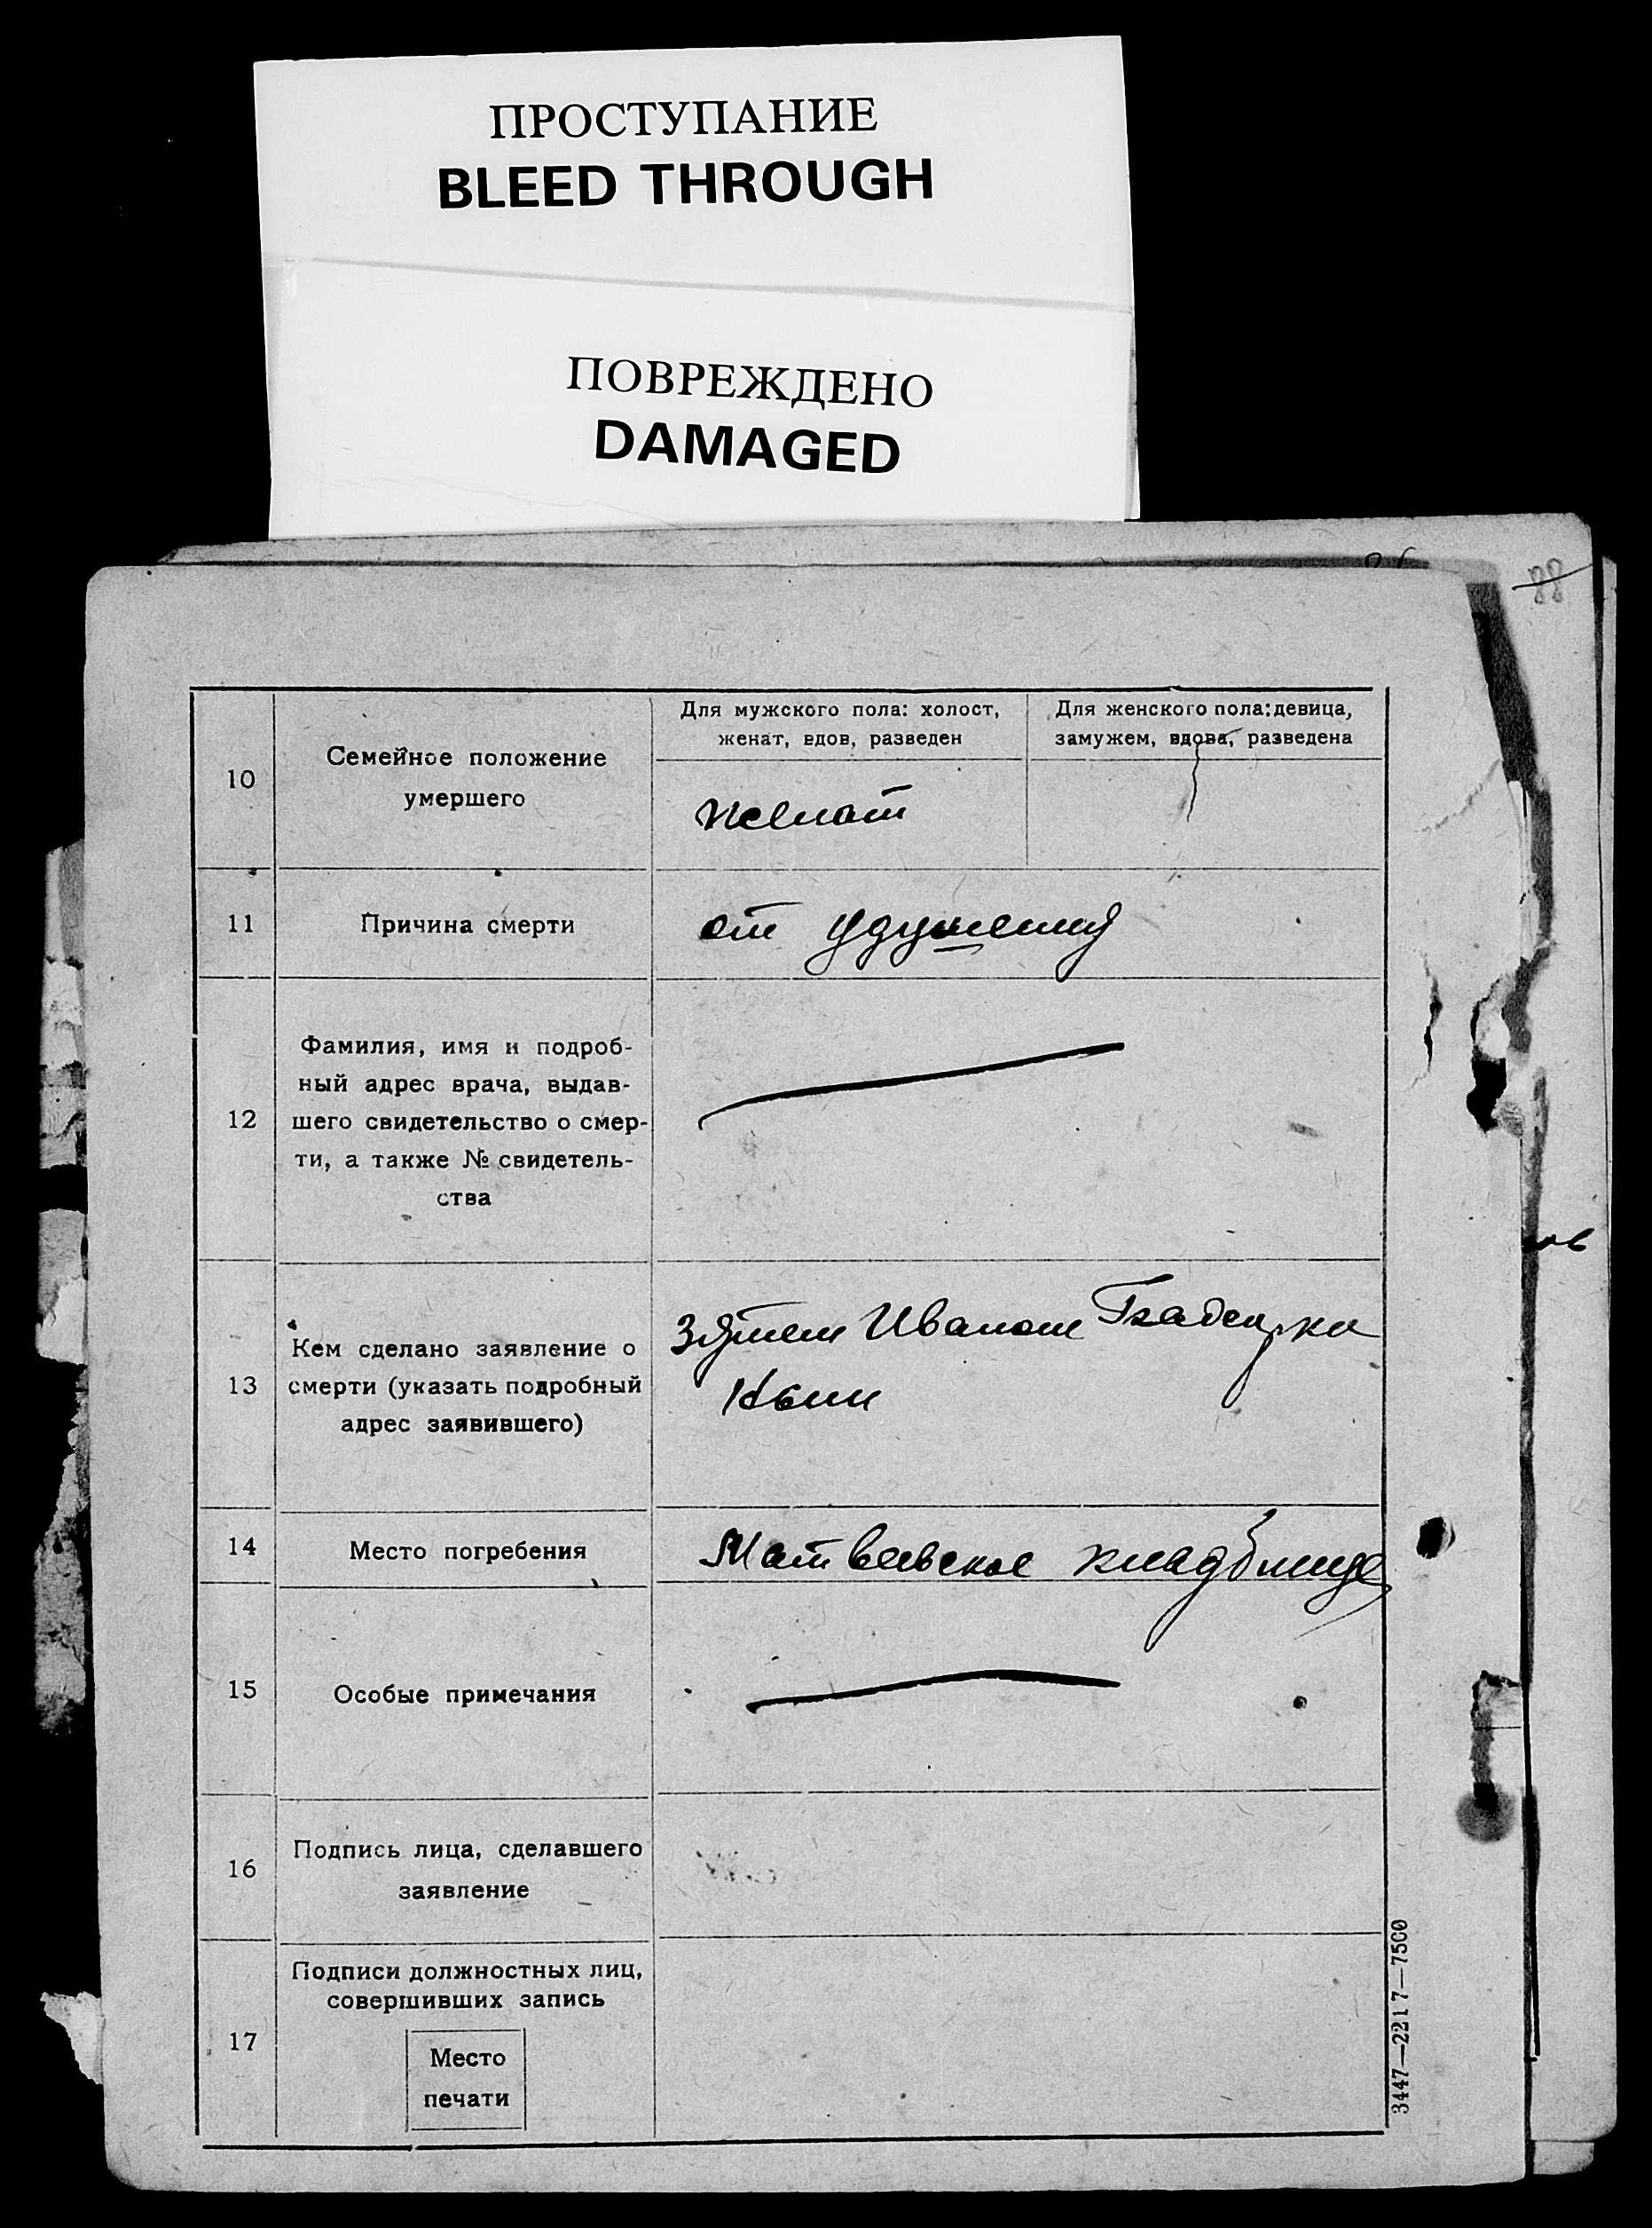 ПРОСТУПАНИЕ
BLEED THROUGH
ПОВРЕЖДЕНО
DAMAGED
88
10
Семейное положение
умершего
Для мужского пола: холост,
женат, вдов, разведен
Для женского пола: девица,
замужем, вдова, разведена
женат
11
Причина смерти
от удушения
12
Фамилия, имя и подроб-
ный адрес врача, выдав-
шего свидетельство о смер-
ти, а также № свидетель-
ства
13
Кем сделано заявление о
смерти (указать подробный
адрес заявившего)
Зятем Иваном
14
Место погребения
Матвеевское кладбище
15
Особые примечания
16
Подпись лица, сделавшего
заявление
17
Подписи должностных лиц,
совершивших запись
Место
печати
3447—2217—7500